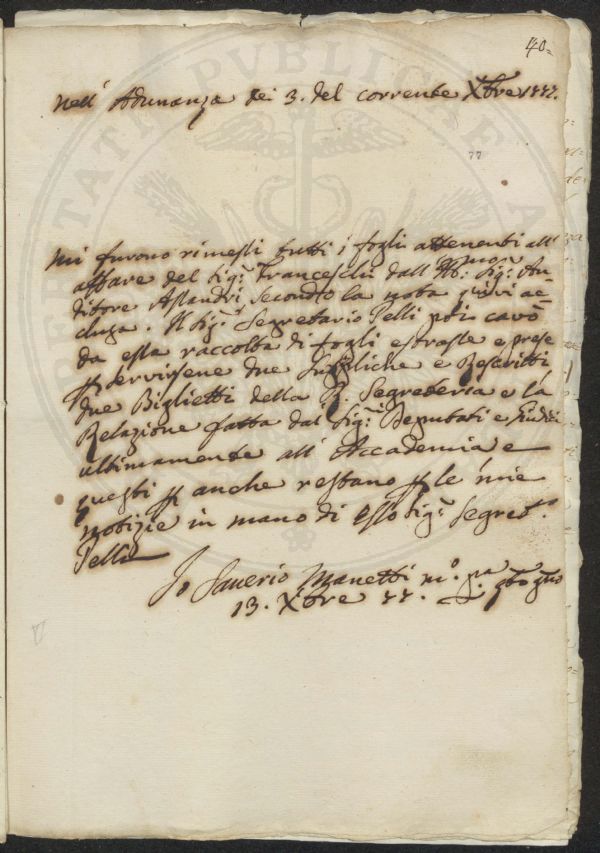 40=
Nell' Adunanza dei 3. del corrente Xbre 1777.
77
Mi furono rimessi tutti i fogli attenenti all'
affare del Sig.r Franceschi dall' Ill.mo Sig.r Au-
ditore Aslandri secondo la nota quivi ac-
clusa. Il Sig.r Segretario Pelli poi cavò
da essa raccolta di fogli estrasse e prese
p servirsene due Suppliche e Rescritti,
due Biglietti della R. Segreteria e la
Relazione fatta dai Sig.ri Deputati e Sindici
ultimamente all' Accademia e
questi p anche restano p le mie
notizie in mano di esso Sig.r Segret.o
Pelli
Io Saverio Manetti m.o pa
13. Xbre 77.
PUBLICE